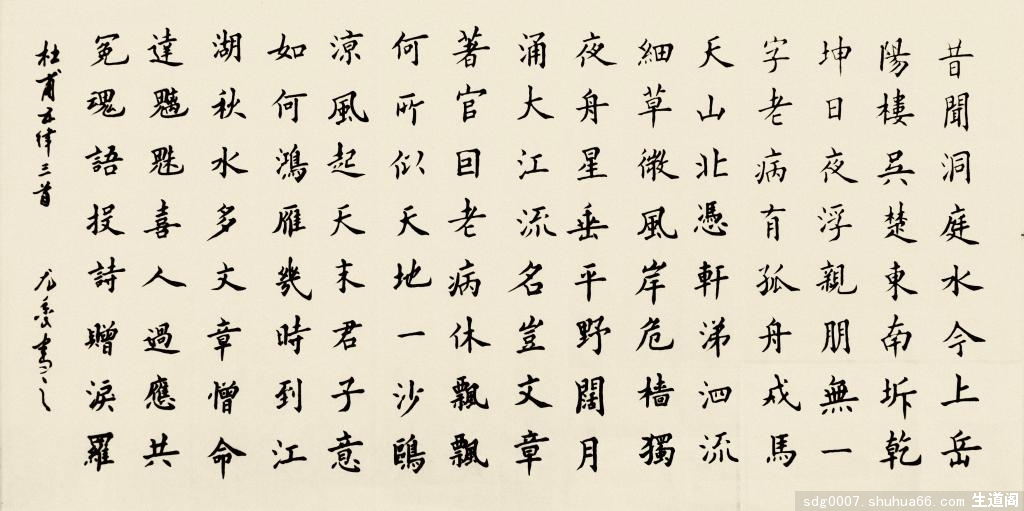 昔聞洞庭水今上岳
陽樓吳楚東南坼乾
坤日夜浮親朋無一
字老病有孤舟戎馬
天山北憑軒涕泗流
細草微風岸危檣獨
夜舟星垂平野闊月
涌大江流名豈文章
著官因老病休飄飄
何所似天地一沙鷗
涼風起天末君子意
如何鴻雁幾時到江
湖秋水多文章憎命
達魑魅喜人過應共
冤魂語投詩贈淚羅
杜甫五律三首 書之
sdg0007.shuhua66.com 生道阁